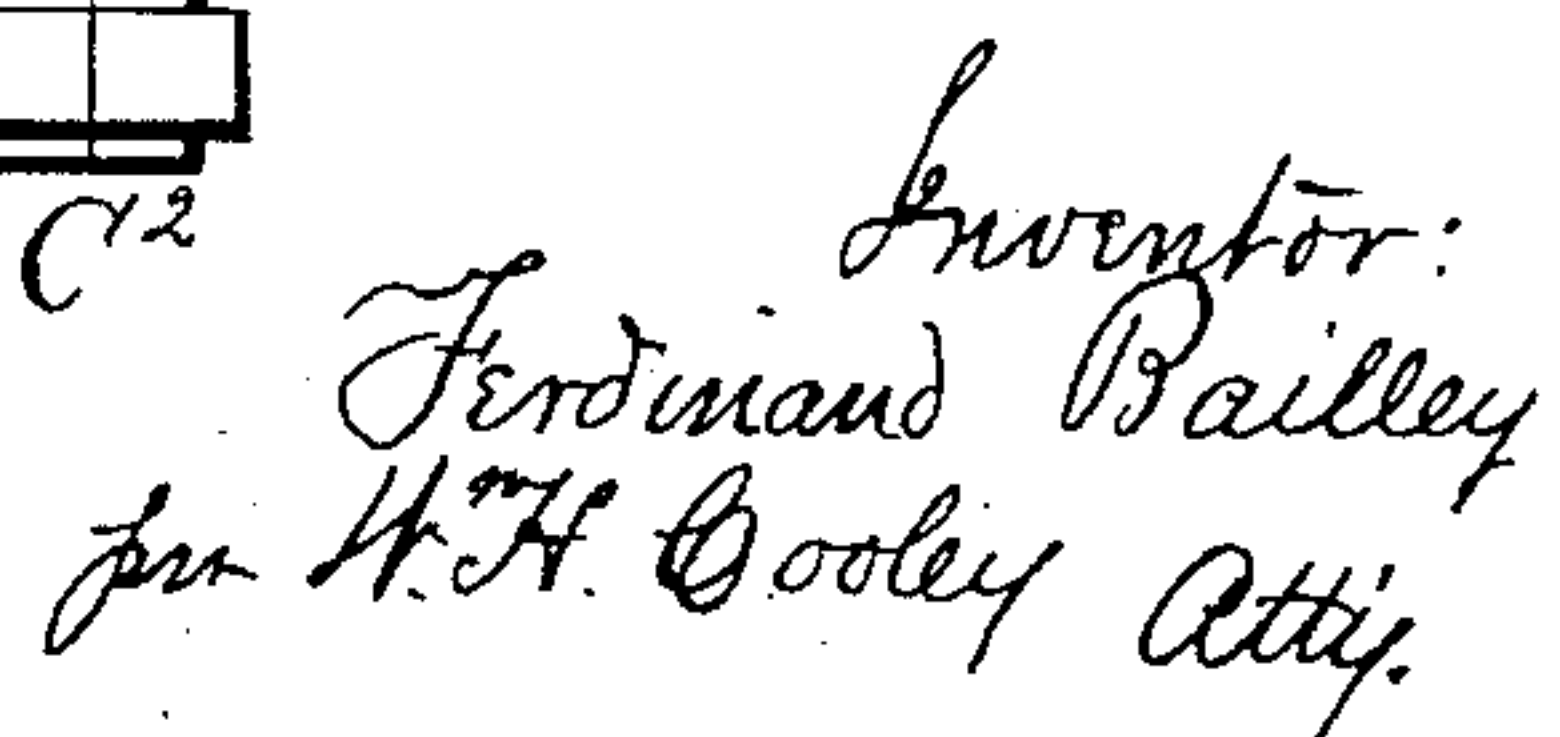 C²
Inventor:
Ferdinand Bailley
per Wm. H. Cooley Atty.